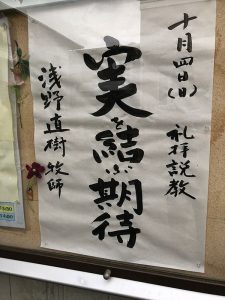 十月四日(日) 礼拝説教
実を結ぶ期待
浅野直樹牧師